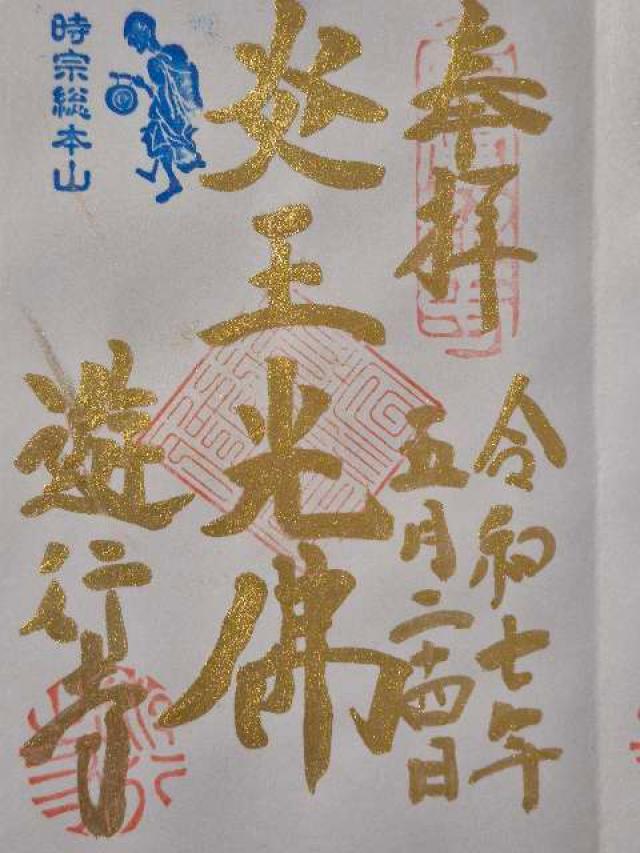 奉拝
令和七年
五月二十四日
炎王光佛
時宗総本山
遊行寺